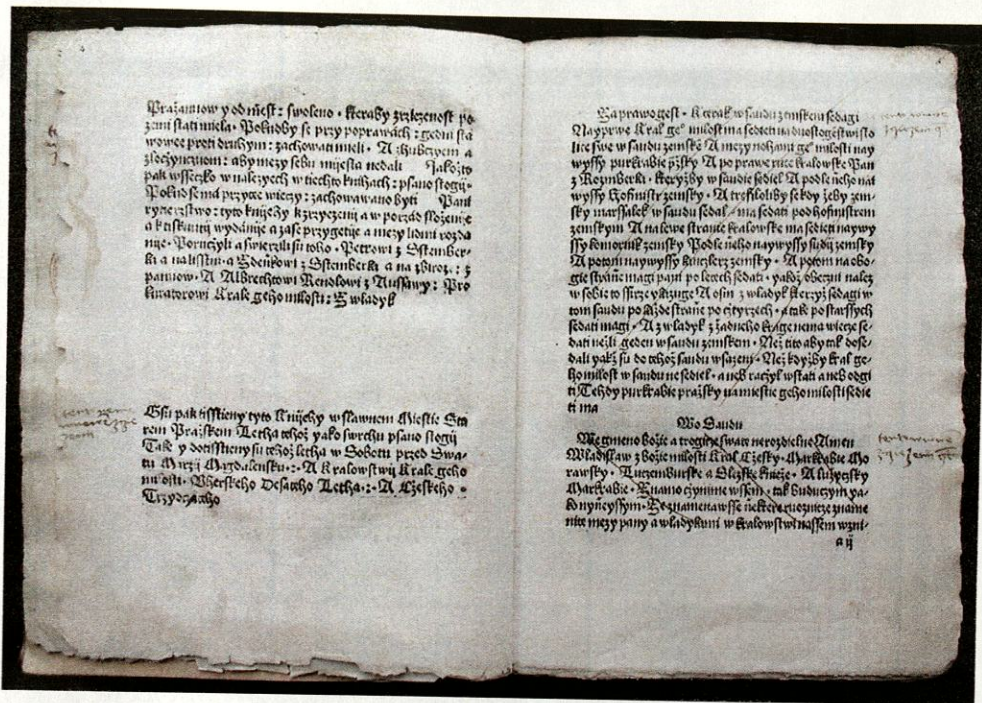 Pražanuow y od miest: swoleno · kteraby zrzizenost po
zemi stati miela · Pokudby se przy poprawach: gedni sta
wowee proti druhym: zachowati mieli · A zhubczym a
zloczyncuom: aby mezy sebu miesta nedali Jakožto
pak wsseczko w nalezech w tiechto knihach: psano stogij·
Pokud se ma przytee wieczy: zachowawano byti Pani
ryterzstwo: tyto knijehy k zrzyzenij a w porzad složenije
a k tisknutij wydanije a zase przygetije a mezy lidmi rozda
nije · Poruczyli a swierzili su toho · Petrowi z Sstember-
ka a na lisstni · a Zdeňkowi z Sstemberka a na zbiroz: z
panuow · A Albrechtowi Rendlowi z Aussawy: Pro
kuratorowi Krale geho milosti: Z wladyk
Gsu pak tisstieny tyto Knijehy w slawnem Miestie Sta
rem Pražskem Letha tehož yako swrchu psano stogij
Tak y dotisstieny su tehož letha w Sobotu przed Swa-
tu Marzij Magdalensku·:· A Kralowstwij Krale geho
milosti · Vherskeho Desateho Letha·:· A Czeskeho ·
Trzydczateho
Za prawo gest · K terak w saudu zemskem sedagi
Nayprwe Kral geº milost ma sedieti na duostogenstwi sto
lice swe w saudu zemskē A mezy nohami geº milosti nay
wyssy purkrabie pžsky A po prawe ruce kralowske Pan
z Rozmberka · kteryžby w saudie sediel A podle ňeho nai
wyssy Hofmistr zemsky · A trefiloliby se kdy žeby zem-
sky marssalek w saudu sedal / ma sedati pod hofmistrem
zemskym A na lewe stranie kralowske ma sedieti naywy
ssy komornik zemsky Podle ňeho naywyssy sudij zemsky
A potom naywyssy kanczlerz zemsky · A potom na obo-
gie straňe magi pani po letech sedati · yakož obecni nalez
w sobie to ssirze vkazuge A osm z wladyk kterzyž sedagi w
tom saudu po každe straňe po cztyrzech · a tak po starssych
sedati magi · A z wladyk z žadneho krage nema wiecze se-
dati nežli geden w saudu zemskem · Než tito aby tak dose-
dali yakž su do tehož saudu wsazeni · Než kdyžby kral ge-
ho milost w saudu nesediel · a neb raczyl wstati a neb odgi
ti Tehdy purkrabie pražsky na miestie geho milosti sedie
ti ma
Wo Saudu
We gmeno božie a trogicze swate nerozdielne Amen
Wladislaw z božie milosti Kral Czesky · Markrabie Mo
rawsky · Luczemburske a Slezske knieže · A lužyczsky
Markrabie · Znamo czynime wssem · tak buduczym ya-
ko nyneyssym · Poznamenawsse niektere ruoznicze zname
nite mezy pany a wladykami w kralowstwi nassem wzni-
a ij